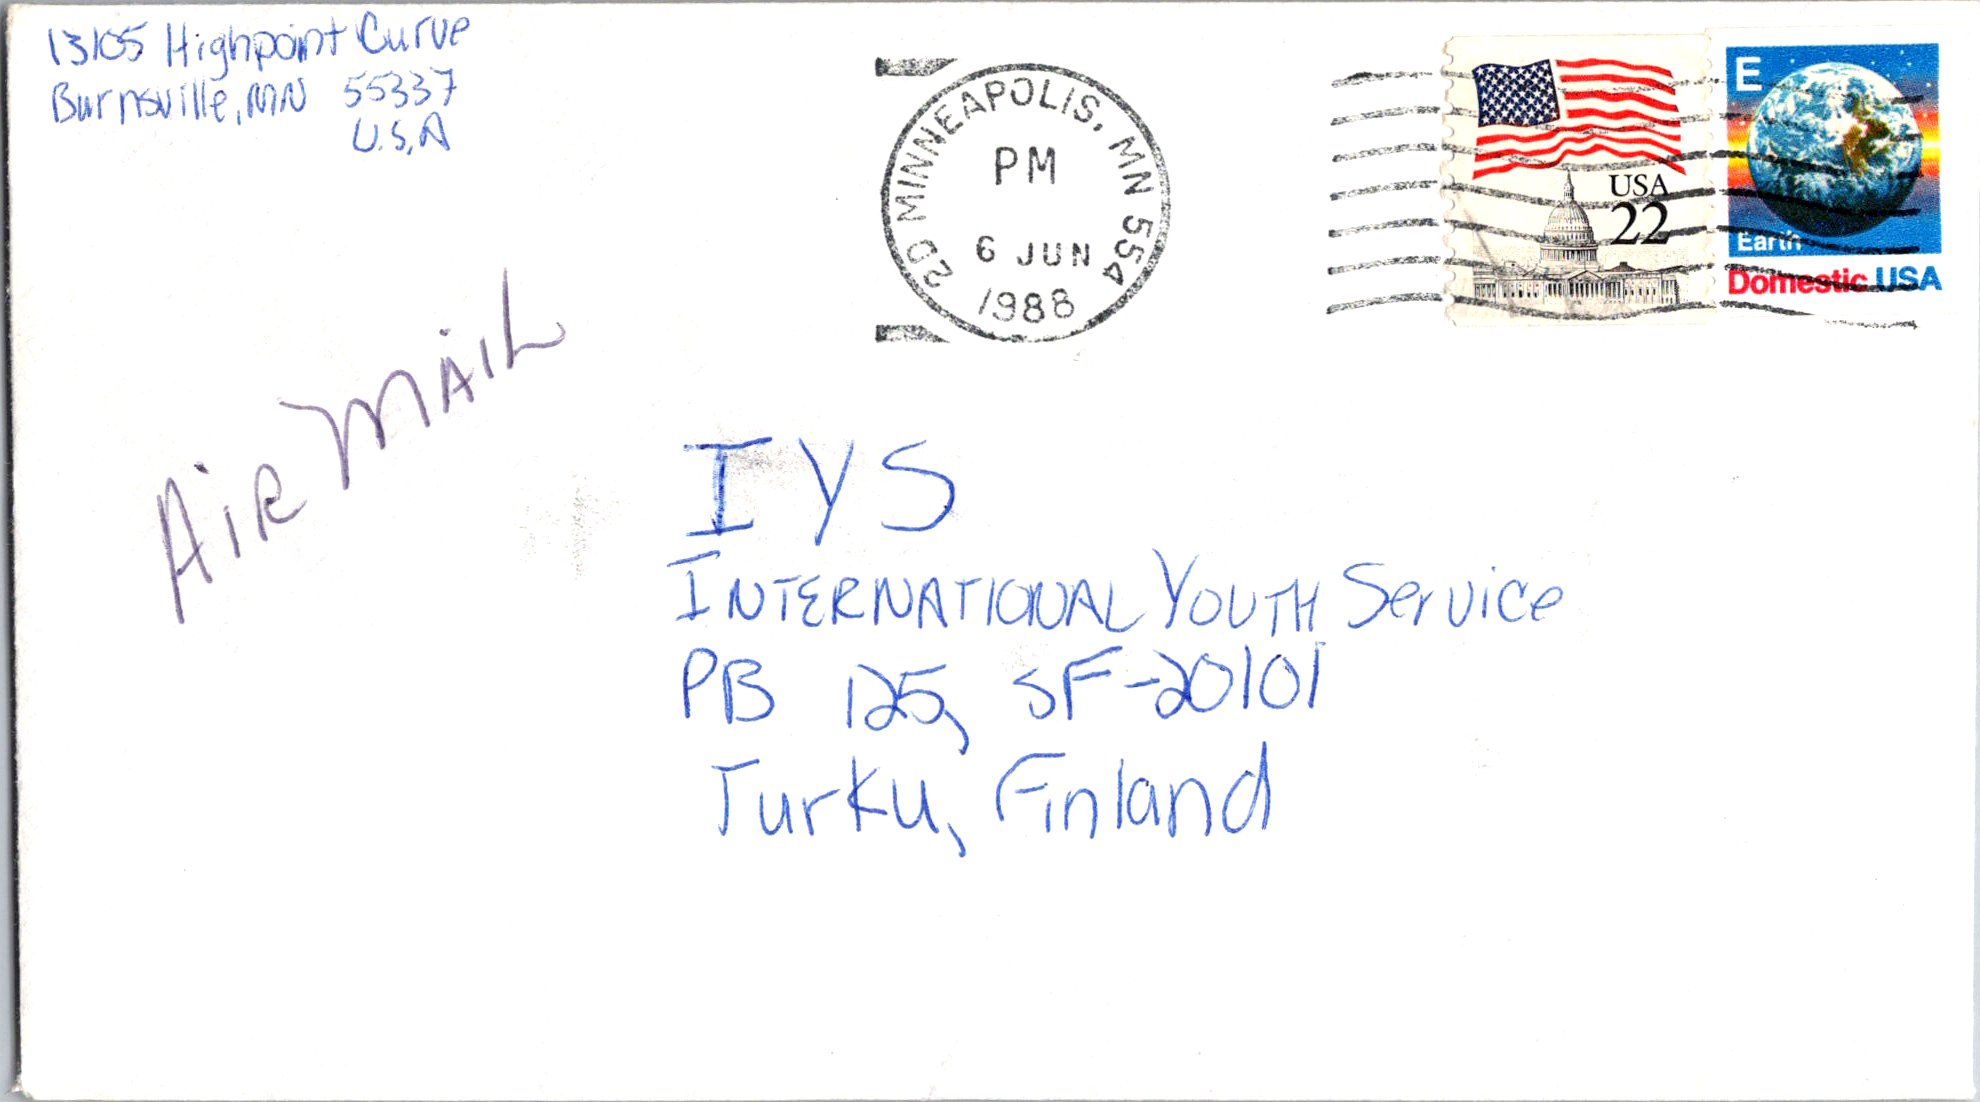 13105 Highpoint Curve
Burnsville, MN 55337
U.S.A
2D MINNEAPOLIS, MN 554
PM
6 JUN
1988
USA
22
E
Earth
Domestic USA
AIR MAIL
IYS
INTERNATIONAL YOUTH Service
PB 125, SF-20101
Turku, Finland